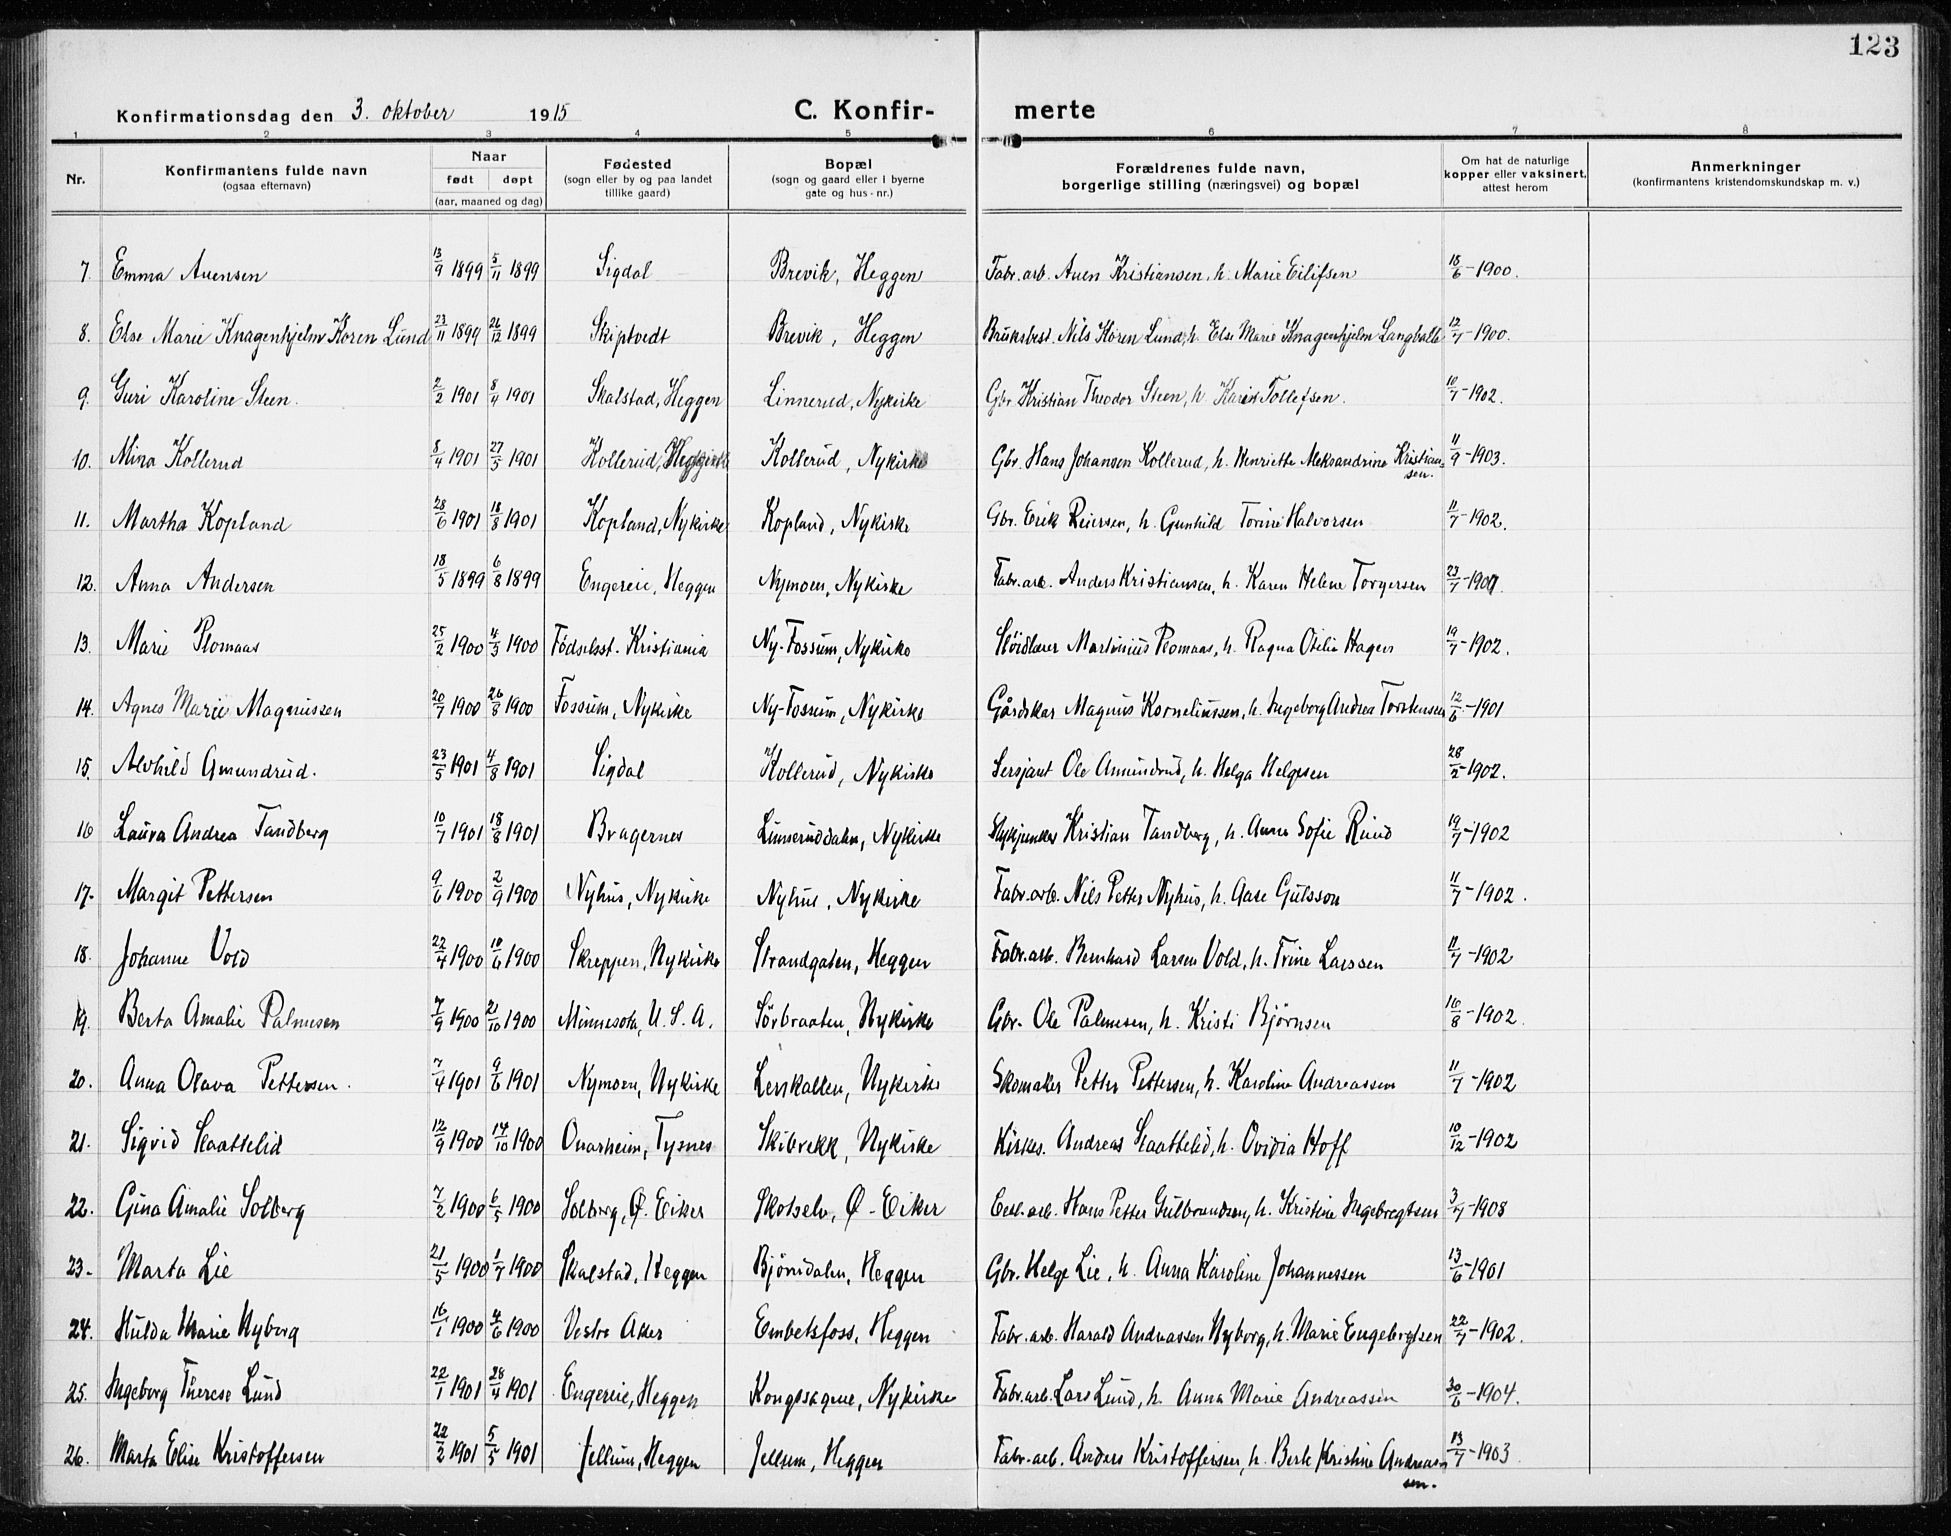 123
Konfirmationsdag den 3. oktober 1915 C. Konfir- merte
1 2 3 4 5 6 7 8
Nr. Konfirmantens fulde navn (ogsaa efternavn) Naar født døpt (aar, maaned og dag) Fødested (sogn eller by og paa landet tillike gaard) Bopæl (sogn og gaard eller i byerne gate og hus-nr.) Forældrenes fulde navn, borgerlige stilling (næringsvei) og bopæl Om hat de naturlige kopper eller vaksinert, attest herom Anmerkninger (konfirmantens kristendomskundskap m. v.)
7. Emma Auensen 13/9 1899 5/11 1899 Sigdal Brevik, Heggen Fabr. arb. Auen Kristiansen, h. Marie Eilifsen 18/6-1900.
8. Else Marie Knagenhjelm Koren Lund 23/11 1899 26/12 1899 Skiptvedt Brevik, Heggen Bruksbest. Nils Koren Lund, h. Else Marie Knagenhjelm Langballe 12/7-1900.
9. Guri Karoline Steen. 2/2 1901 8/4 1901 Skalstad, Heggen Linnerud, Nykirke Gbr. Kristian Theodor Steen, h. Karin Tollefsen. 10/7-1902.
10. Mina Kollerud 8/4 1901 27/5 1901 Kollerud, Kollerud, Nykirke Gbr. Hans Johansen Kollerud, h. Henriette Aleksandrine Kristian-
sen. 11/9-1903.
11. Martha Kopland 28/6 1901 18/8 1901 Kopland, Nykirke Kopland, Nykirke Gbr. Erik Reiersen, h. Gunhild Torine Halvorsen 11/7-1902.
12. Anna Andersen 18/5 1899 6/8 1899 Engereie, Heggen Nymoen, Nykirke Fabr. arb. Anders Kristiansen, h. Karen Helene Torgersen 23/7-1900.
13. Marie Plomaas 25/2 1900 4/5 1900 Fødselsst. Kristiania Ny-Fossum, Nykirke Sløidlærer Martinius Plomaas, h. Ragna Otilie Hagen 19/7-1902.
14. Agnes Marie Magnussen 20/7 1900 26/8 1900 Fossum, Nykirke Ny-Fossum, Nykirke Gårdskar Magnus Korneliussen, h. Ingeborg Andrea Torstensen 12/6-1901
15. Alvhild Amundrud. 23/5 1901 4/8 1901 Sigdal Kollerud, Nykirke Sersjant Ole Amundrud, h. Helga Helgesen 28/2-1902.
16 Laura Andrea Tandberg 10/7 1901 18/8 1901 Bragernes Linneruddalen, Nykirke Kristian Tandberg, h. Anna Sofie Ruud 19/7-1902
17. Margit Pettersen 9/6 1900 2/9 1900 Nyhus, Nykirke Nyhus, Nykirke Fabr. arb. Nils Petter Nyhus, h. Aase Gulsson 11/7-1902.
18. Johanne Vold 22/4 1900 10/6 1900 Skreppen, Nykirke Strandgaten, Heggen Fabr. arb. Bernhard Larsen Vold, h. Trine Larssen 11/7-1902
19. Berta Amalie Palmesen 7/9 1900 21/10 1900 Minnesota, U. S. A. Sørbraaten, Nykirke Gbr. Ole Palmesen, h. Kristi Bjørnsen 16/8-1902.
20. Anna Olava Pettersen. 7/4 1901 9/6 1901 Nymoen, Nykirke Lerskallen, Nykirke Skomaker Petter Pettersen, h. Karoline Andreassen 11/7-1902
21. Sigrid Slaattelid 12/9 1900 14/10 1900 Onarheim, Tysnes Skibrekk, Nykirke Kirkes. Andreas Slaattelid, h. Ovidia Hoff 10/12-1902
22. Gina Amalie Solberg 7/2 1900 6/5 1900 Solberg, Ø. Eiker Skotselv, Ø-Eiker Cell. arb. Hans Petter Gulbrandsen, h. Kristine Ingebregtsen 3/7-1908
23. Marta Lie 21/5 1900 1/7 1900 Skalstad, Heggen Bjørndalen, Heggen Gbr. Helge Lie, h. Anna Karoline Johannessen 13/6-1901
24. Hulda Marie Nyborg 16/1 1900 4/6 1900 Vestre Aker Embetsfoss, Heggen Fabr. arb. Harald Andreassen Nyborg, h. Marie Engebrgtsen 22/7-1902.
25. Ingeborg Therese Lund 22/1 1901 28/4 1901 Engereie, Heggen Kongssagene, Nykirke Fabr. arb. Lars Lund, h. Anna Marie Andreassen 30/6-1904.
26. Marta Elise Kristoffersen 22/2 1901 5/5 1901 Jellum, Heggen Jellum, Heggen Fabr. arb. Anders Kristoffersen, h. Berte Kristine Andreas-
sen. 13/7-1903